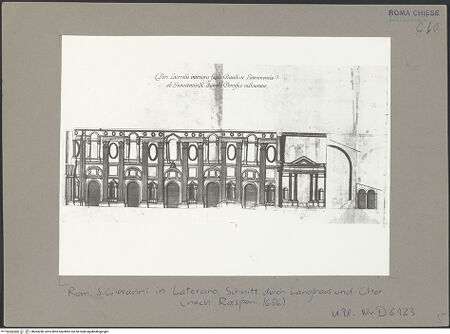 ROMA CHIESE
C 40
Pars Lateralis interioris faciei Basilicae Lateranensis
ab Innocentio X. Pontifice
Rom, S. Giovanni in Laterano, Schnitt durch Langhaus und Chor
(nach Rasponi 1656)
U. Pl. Nr. D 6123
5